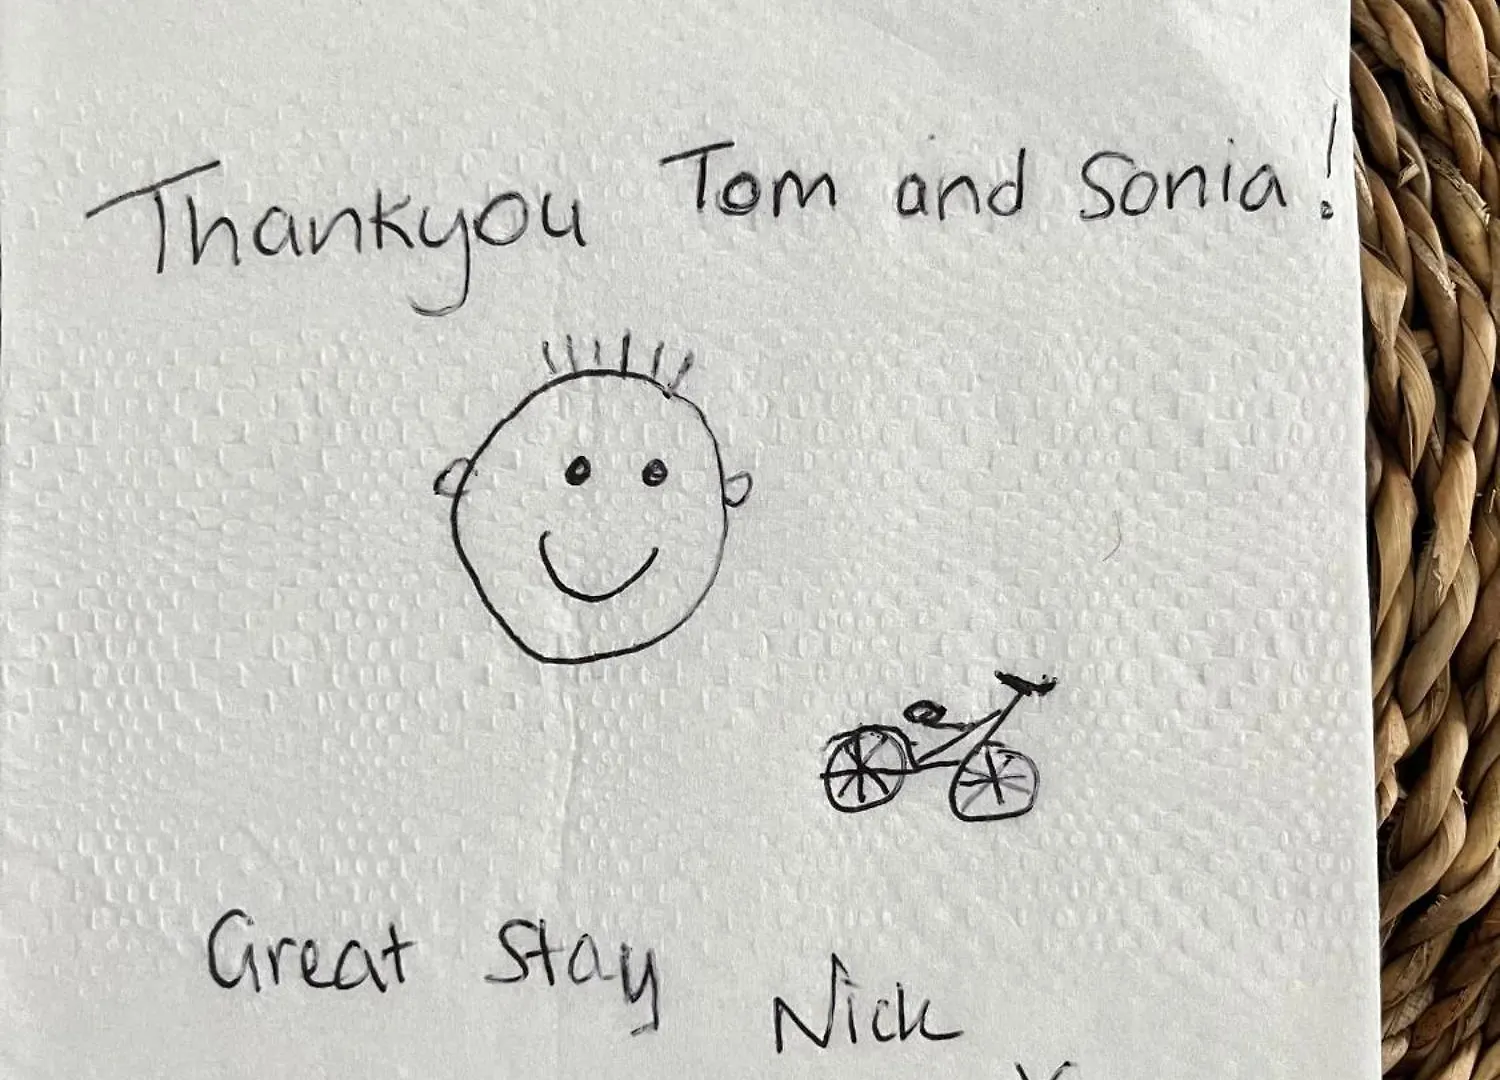 Thankyou Tom and Sonia!
Great Stay
Nick